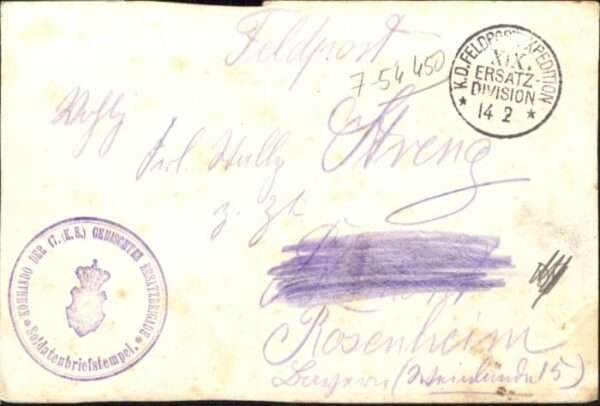 Feldpost
7-54 450
K.D. FELDPOSTEXPEDITION
XIX.
ERSATZ
DIVISION
14 2
Wohlg
Frl. Wally Streng
z. Zt.
Rosenheim
Bayern (Weinlände 15)
KOMMANDO DER 47. (K. S.) GEMISCHTEN ERSATZBRIGADE
Soldatenbriefstempel.